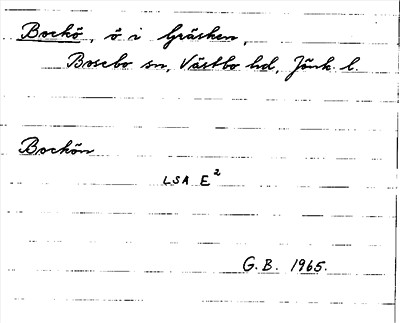 Bockö, ö i Gräsken,
Bosebo sn, Västbo hd, Jönk. l.
Bockön
LSA E²
G.B. 1965.